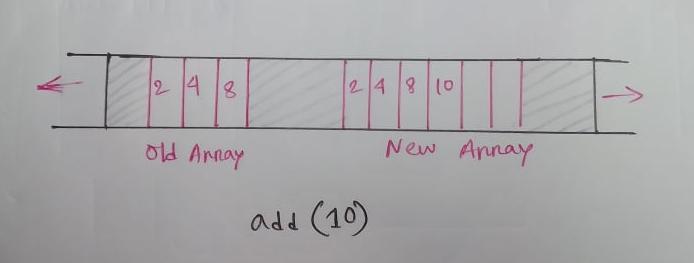 2 4 8 2 4 8 10
Old Array New Array
add (10)